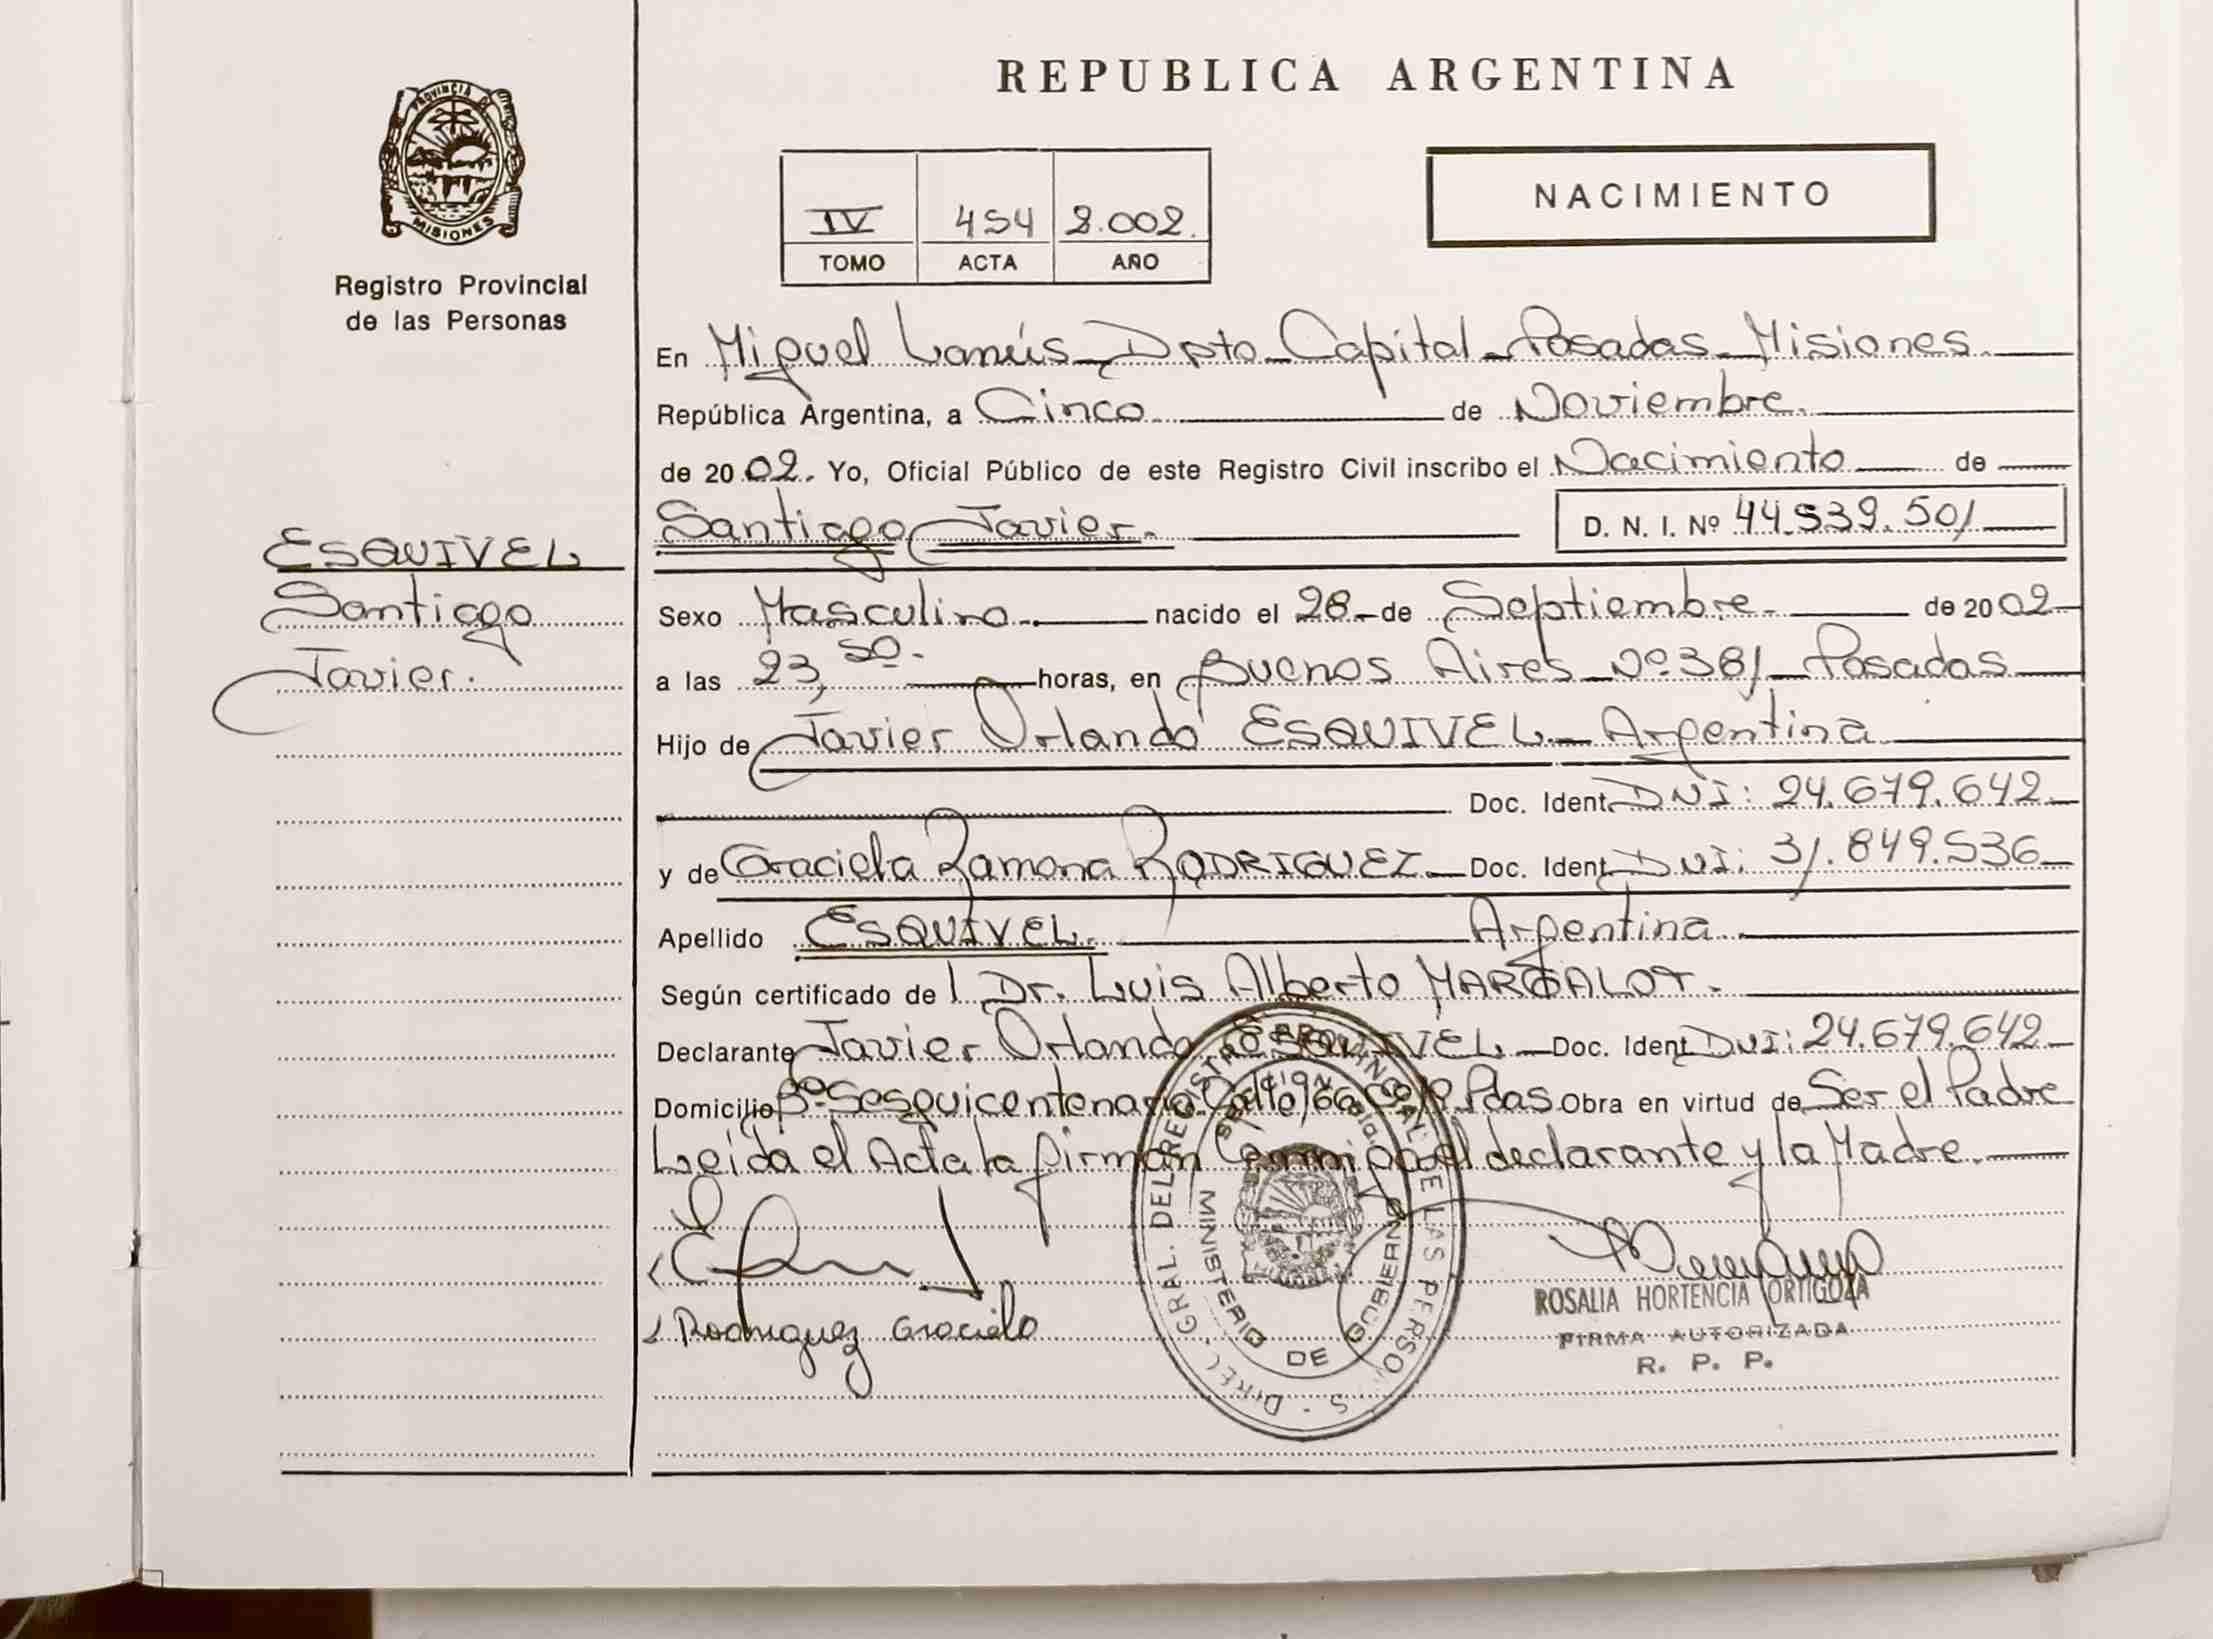 REPUBLICA ARGENTINA
PROVINCIA D
MISIONES
Registro Provincial
de las Personas
IV 454 2.002.
TOMO ACTA AÑO
NACIMIENTO
En Miguel Lanús - Dpto - Capital - Posadas - Misiones.
República Argentina, a Cinco de Noviembre.
de 20 02. Yo, Oficial Público de este Registro Civil inscribo el Nacimiento de
Santiago Javier. D. N. I. Nº 44.539.501
ESQUIVEL
Santiago
Javier.
Sexo Masculino. nacido el 28 - de Septiembre - de 20 02
a las 23,50. horas, en Buenos Aires Nº 381 - Posadas
Hijo de Javier Orlando ESQUIVEL - Argentina
Doc. Ident. DNI: 24.679.642
y de Graciela Ramona RODRIGUEZ - Doc. Ident. DNI: 31.849.536
Apellido ESQUIVEL. Argentina
Según certificado de l Dr. Luis Alberto MARGALOT.
Declarante Javier Orlando ESQUIVEL - Doc. Ident. DNI: 24.679.642
Domicilio Bº Sesquicentenario Calle 166 Pdas Obra en virtud de Ser el Padre
Leída el Acta la firman Conmigo el declarante y la Madre.
Rodriguez Graciela
DIREC. GRAL. DEL REGISTRO PROVINCIAL DE LAS PERSO S
MINISTERIO DE GOBIERNO
ROSALIA HORTENCIA ORTIGOZA
FIRMA AUTORIZADA
R. P. P.